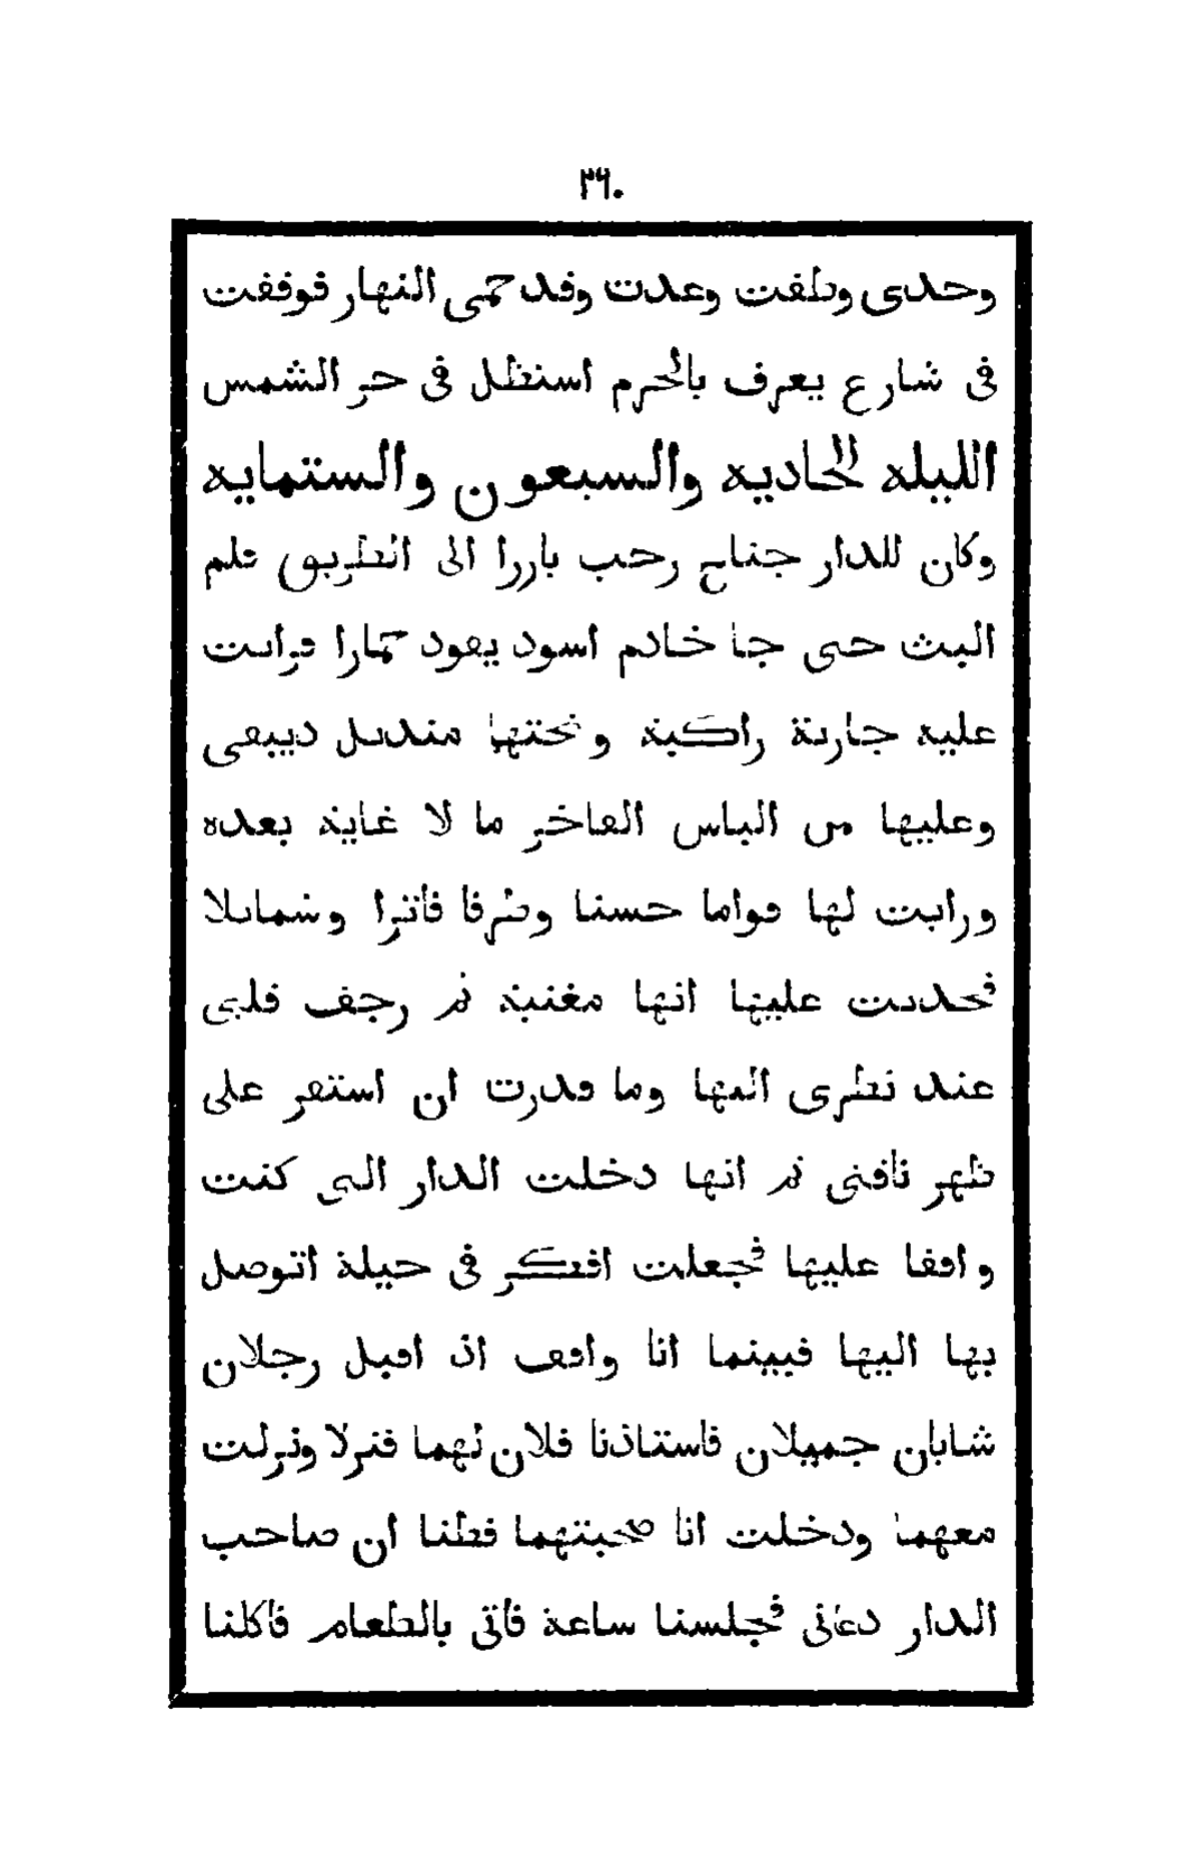 ٣٦٠
وحدى وطلفت وعدت وقد حمى النهار فوقفت
فى شارع يعرف بالحرم استظل فى حر الشمس
الليله الحاديه والسبعون والستمايه
وكان للدار جناح رحب بارزا الى الطريق فلم
البث حتى جا خادم اسود يقود حمارا فرايت
عليه جارية راكبة وتحتها منديل دبيقى
وعليها من الباس الفاخر ما لا غاية بعده
ورايت لها قواما حسنا وطرفا فاترا وشمايلا
فحدست عليها انها مغنية ثم رجف قلبى
عند نظرى اليها وما قدرت ان استقر على
ظهر ناقتى ثم انها دخلت الدار التى كنت
واقفا عليها فجعلت افتكر فى حيلة اتوصل
بها اليها فبينما انا واقف اذ اقبل رجلان
شابان جميلان فاستاذنا فلان لهما فنزلا ونزلت
معهما ودخلت انا صحبتهما فظنا ان صاحب
الدار دعانى فجلسنا ساعة فاتى بالطعام فاكلنا